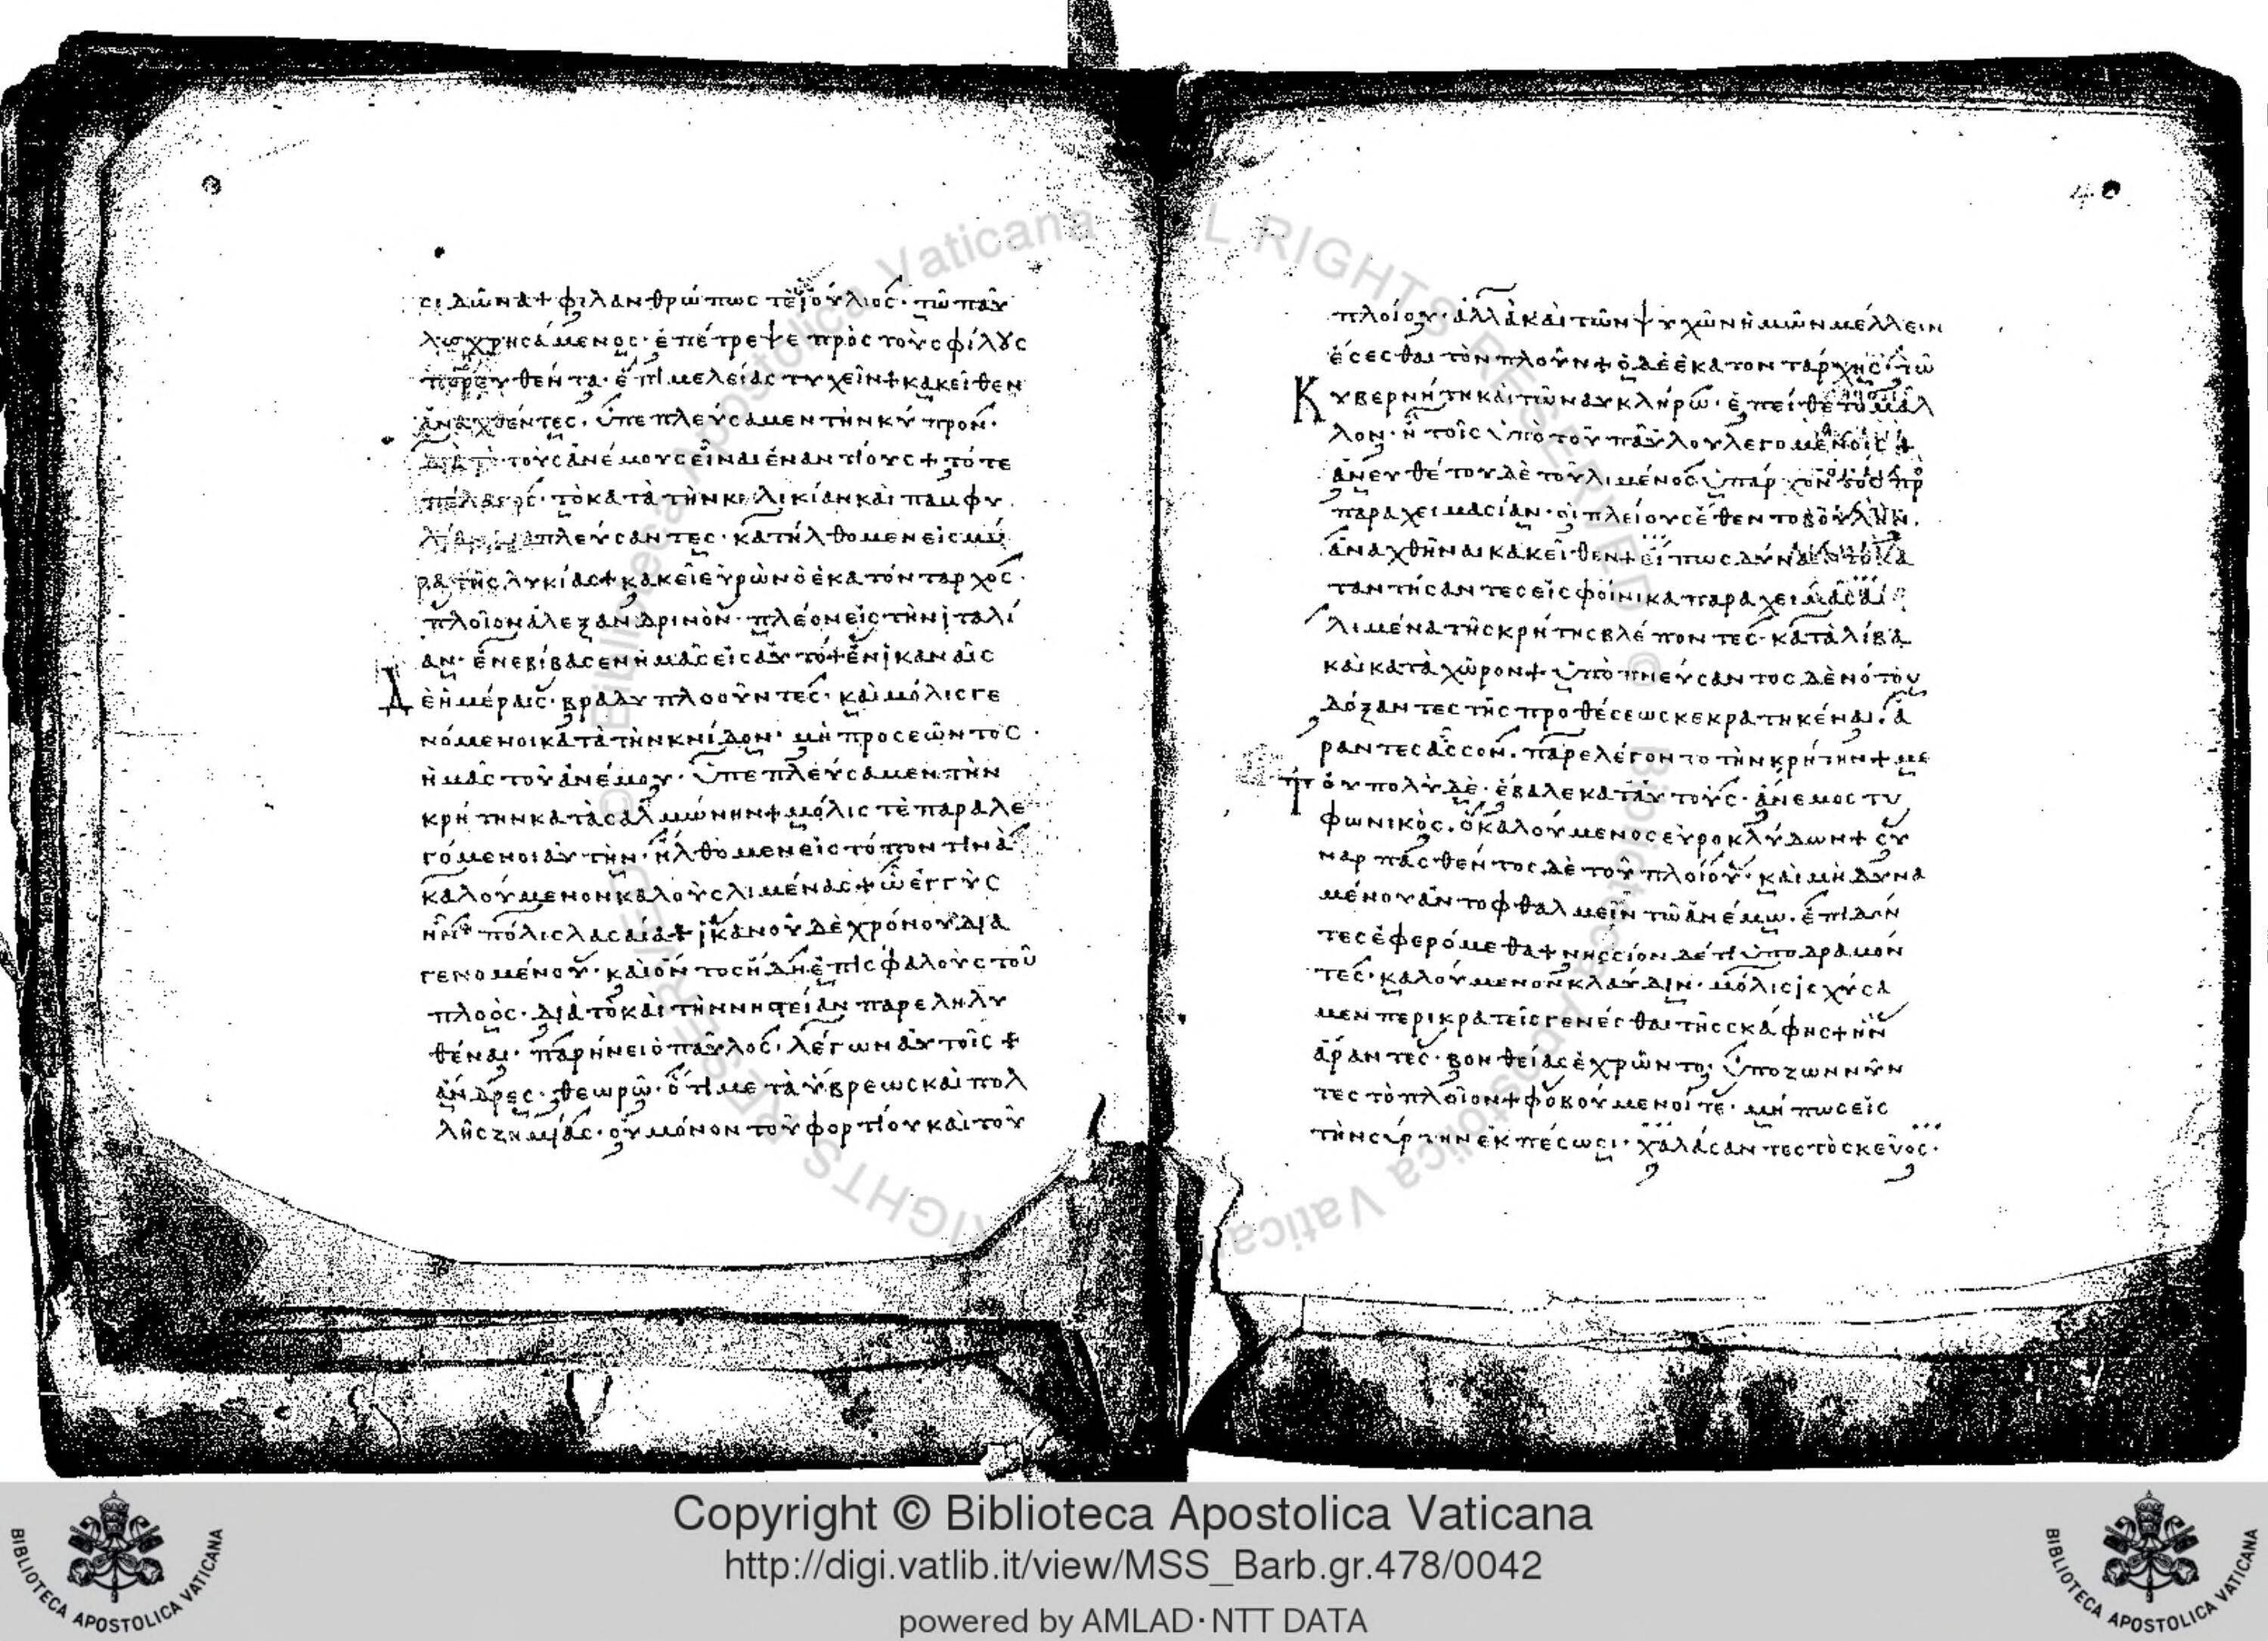 σιδῶνα + φιλανθρώπως τὲ ἰούλιος · τῶ παύ
λω χρησάμενος · ἐπέτρεψε πρὸς τοὺς φίλους
πορευθέντα · ἐπιμελείας τυχεῖν + κακεῖθεν
ἀναχθέντες · ὑπεπλεύσαμεν τὴν κύπρον ·
διὰ τὸ τοὺς ἀνέμους εἶναι ἐναντίους + τό τε
πέλαγος · τὸ κατὰ τὴν κιλικίαν καὶ παμφυ
πλεύσαντες · κατήλθομεν εἰς μύ
ρα τῆς λυκίας + κακεῖ εὑρὼν ὁ ἑκατόνταρχος ·
πλοῖον ἀλεξανδρινὸν · πλέον εἰς τὴν ἰταλί
αν · ἐνεβίβασεν ἡμᾶς εἰς αὐτό + ἐν ἱκαναῖς
δὲ ἡμέραις · βραδυπλοοῦντες · καὶ μόλις γε
νόμενοι κατὰ τὴν κνίδον · μὴ προσεῶντος
ἡμᾶς τοῦ ἀνέμου · ὑπεπλεύσαμεν τὴν
κρήτην κατὰ σαλμώνην + μόλις τὲ παραλε
γόμενοι αὐτὴν · ἤλθομεν εἰς τόπον τινὰ
καλούμενον καλοὺς λιμένας + ὧ ἐγγὺς
ἦν πόλις λασαία + ἱκανοῦ δὲ χρόνου δια
γενομένου · καὶ ὄντος ἤδη ἐπισφαλοὺς τοῦ
πλοὸς · διὰ τὸ καὶ τὴν νηστείαν παρεληλυ
θέναι · παρήνει ὁ παῦλος · λέγων αὐτοῖς +
ἄνδρες · θεωρῶ · ὅτι μετὰ ὕβρεως καὶ πολ
λῆς ζημίας · οὐ μόνον τοῦ φορτίου καὶ τοῦ
40
πλοίου · ἀλλὰ καὶ τῶν ψυχῶν ἡμῶν μέλλειν
ἔσεσθαι τὸν πλοῦν + ὁ δὲ ἑκατοντάρχης · τῶ
Κυβερνήτη καὶ τῶ ναυκλήρω · ἐπείθετο μᾶλ
λον · ἢ τοῖς ὑπὸ τοῦ παύλου λεγομένοις +
ἀνευθέτου δὲ τοῦ λιμένος ὑπάρχοντος πρ
παραχειμασίαν · οἱ πλείους ἔθεντο βουλὴν ·
ἀναχθῆναι κακεῖθεν + εἴ πως δύναιντο κα
ταντήσαντες εἰς φοίνικα παραχειμάσαι
λιμένα τῆς κρήτης βλέποντες · κατὰ λίβα
καὶ κατὰ χῶρον + ὑποπνεύσαντος δὲ νότου
δόξαντες τῆς προθέσεως κεκρατηκέναι · ἄ
ραντες ἆσσον · παρελέγοντο τὴν κρήτην + με
τ' οὐ πολὺ δὲ · ἔβαλε κατ' αὐτοὺς · ἄνεμος τυ
φωνικὸς · ὁ καλούμενος εὐροκλύδων + συ
ναρπασθέντος δὲ τοῦ πλοίου · καὶ μὴ δυνα
μένου ἀντοφθαλμεῖν τῶ ἀνέμω · ἐπιδόν
τες ἐφερόμεθα + νησσίον δέ τι ὑποδραμόν
τες · καλούμενον κλαύδην · μόλις ἰσχύσα
μεν περικρατεῖς γενέσθαι τῆς σκάφης + ἣν
ἄραντες · βοηθείας ἐχρῶντο · ὑποζωννῦν
τες τὸ πλοῖον + φοβούμενοί τε · μή πως εἰς
τὴν σύρτην ἐκπέσωσι · χαλάσαντες τὸ σκεῦος ·
Copyright © Biblioteca Apostolica Vaticana
http://digi.vatlib.it/view/MSS_Barb.gr.478/0042
powered by AMLAD·NTT DATA
BIBLIOTECA APOSTOLICA VATICANA
BIBLIOTECA APOSTOLICA VATICANA